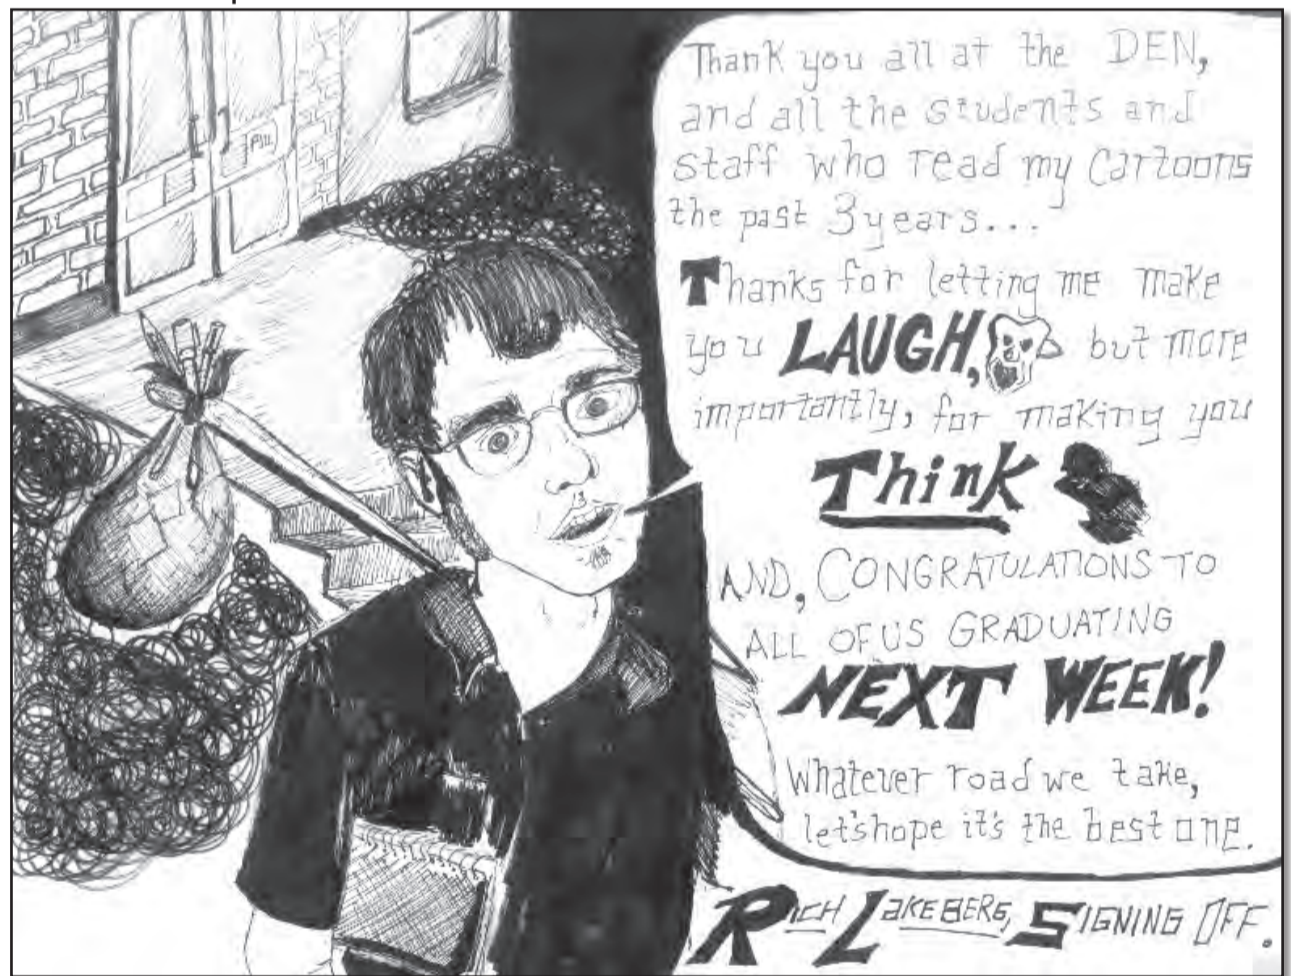 PULL
Thank you all at the DEN,
and all the students and
staff who read my cartoons
the past 3 years...
Thanks for letting me make
you LAUGH, but more
importantly, for making you
Think
AND, CONGRATULATIONS TO
ALL OF US GRADUATING
NEXT WEEK!
Whatever road we take,
let's hope it's the best one.
RICH LAKEBERG, SIGNING OFF.